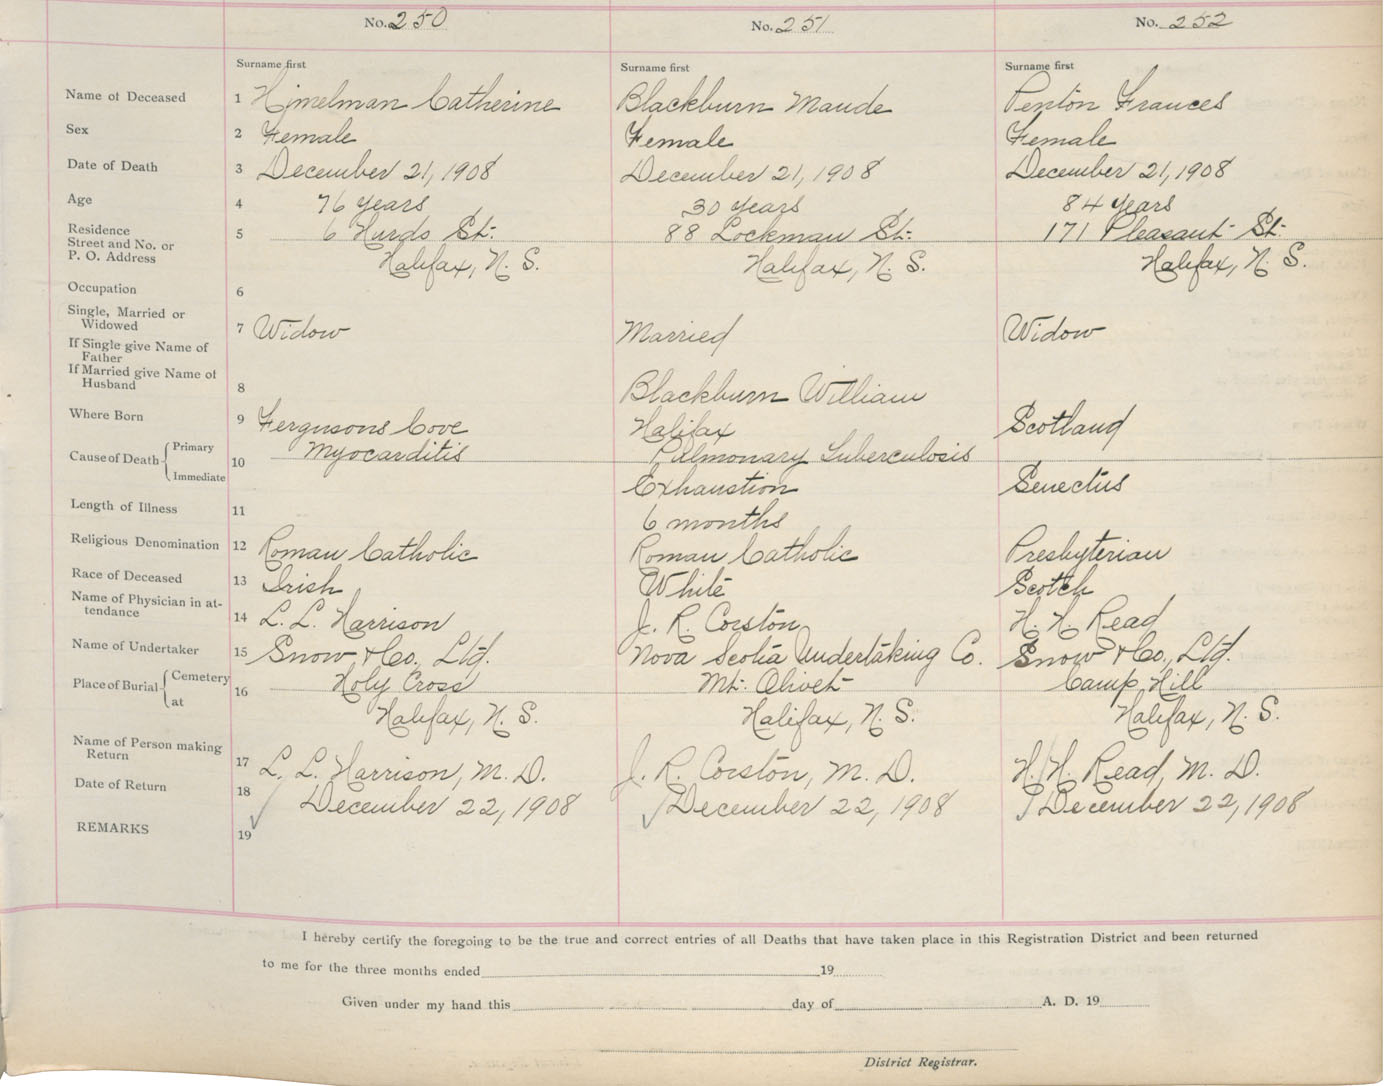 No. 250 No. 251 No. 252
Surname first Surname first Surname first
Name of Deceased 1 Himelman Catherine Blackburn Maude Penton Frances
Sex 2 Female Female Female
Date of Death 3 December 21, 1908 December 21, 1908 December 21, 1908
Age 4 76 years 30 years 84 years
Residence
Street and No. or 5 6 Hurds St: 88 Lockman St: 171 Pleasant St:
P. O. Address Halifax, N. S. Halifax, N. S. Halifax, N. S.
Occupation 6
Single, Married or
Widowed 7 Widow Married Widow
If Single give Name of
Father
If Married give Name of
Husband 8 Blackburn William
Where Born 9 Fergusons Cove Halifax Scotland
Cause of Death Primary 10 Myocarditis Pulmonary Tuberculosis
Immediate Exhaustion Senectus
Length of Illness 11 6 months
Religious Denomination 12 Roman Catholic Roman Catholic Presbyterian
Race of Deceased 13 Irish White Scotch
Name of Physician in at-
tendance 14 L. L. Harrison J. R. Corston H. H. Read
Name of Undertaker 15 Snow & Co., Ltd. Nova Scotia Undertaking Co. Snow & Co., Ltd.
Place of Burial Cemetery 16 Holy Cross Mt. Olivet Camp Hill
at Halifax, N. S. Halifax, N. S. Halifax, N. S.
Name of Person making
Return 17 L. L. Harrison, M. D. J. R. Corston, M. D. H. H. Read, M. D.
Date of Return 18 December 22, 1908 December 22, 1908 December 22, 1908
REMARKS 19
I hereby certify the foregoing to be the true and correct entries of all Deaths that have taken place in this Registration District and been returned
to me for the three months ended 19
Given under my hand this day of A. D. 19
District Registrar.